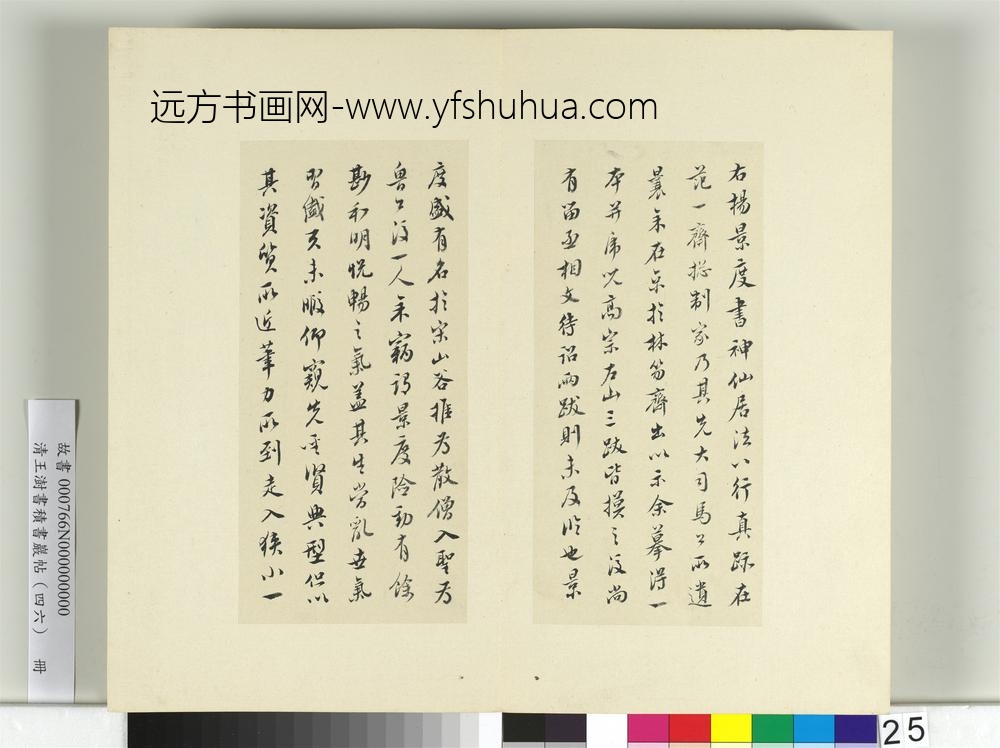 远方书画网-www.yfshuhua.com
右楊景度書神仙居法八行真跡在
范一齋總制家乃其先大司馬公所遺
曩年在京於林芴齋出以示余摹得一
本并席此高宗左山三跋皆摸之後尚
有留丞相文待詔兩跋則未及臨也景
度盛有名於宋山谷推為散僧入聖為
魯公後一人余竊謂景度險勁有餘
勘和明悅暢之氣蓋其生當亂世氣
習衰頁未暇仰窺先聖賢典型但以
其資質所近筆力所到走入狹小一
故書 000766N000000000
清王澍書積書巖帖（四六） 冊
25